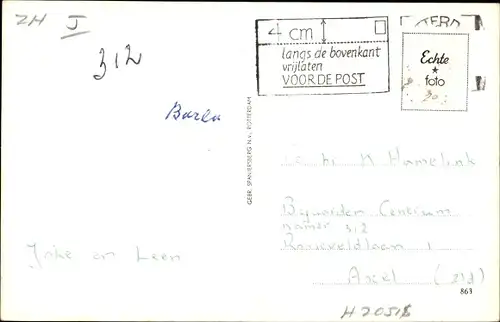 ZH I
312
Baren
4 cm
langs de bovenkant
vrijlaten
VOOR DE POST
Echte
foto
30
GEBR. SPANJERSBERG N.V., ROTTERDAM
N Hamelink
Centrum
kamer 312
1
Axel (Zld)
Joke en Leen
863